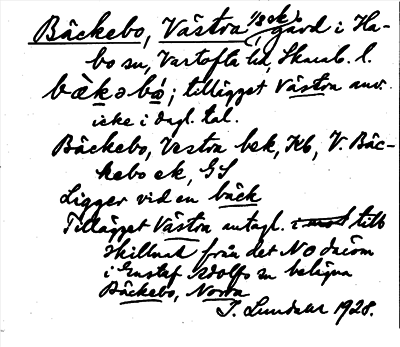 Bäckebo, Västra, 1/8 ek, gård i Ha-
bo sn, Vartofta hd, Skarab. l.
bæ̀kəbó; tillägget Västra anv.
icke i dagl. tal.
Bäckebo, Vestra bek, Kb, V. Bäc-
kebo ek, GS
Ligger vid en bäck
Tillägget Västra antagl. till
skillnad från det NO därom
i Gustaf Adolfs sn belägna
Bäckebo, Norra
J. Lundahl 1928.